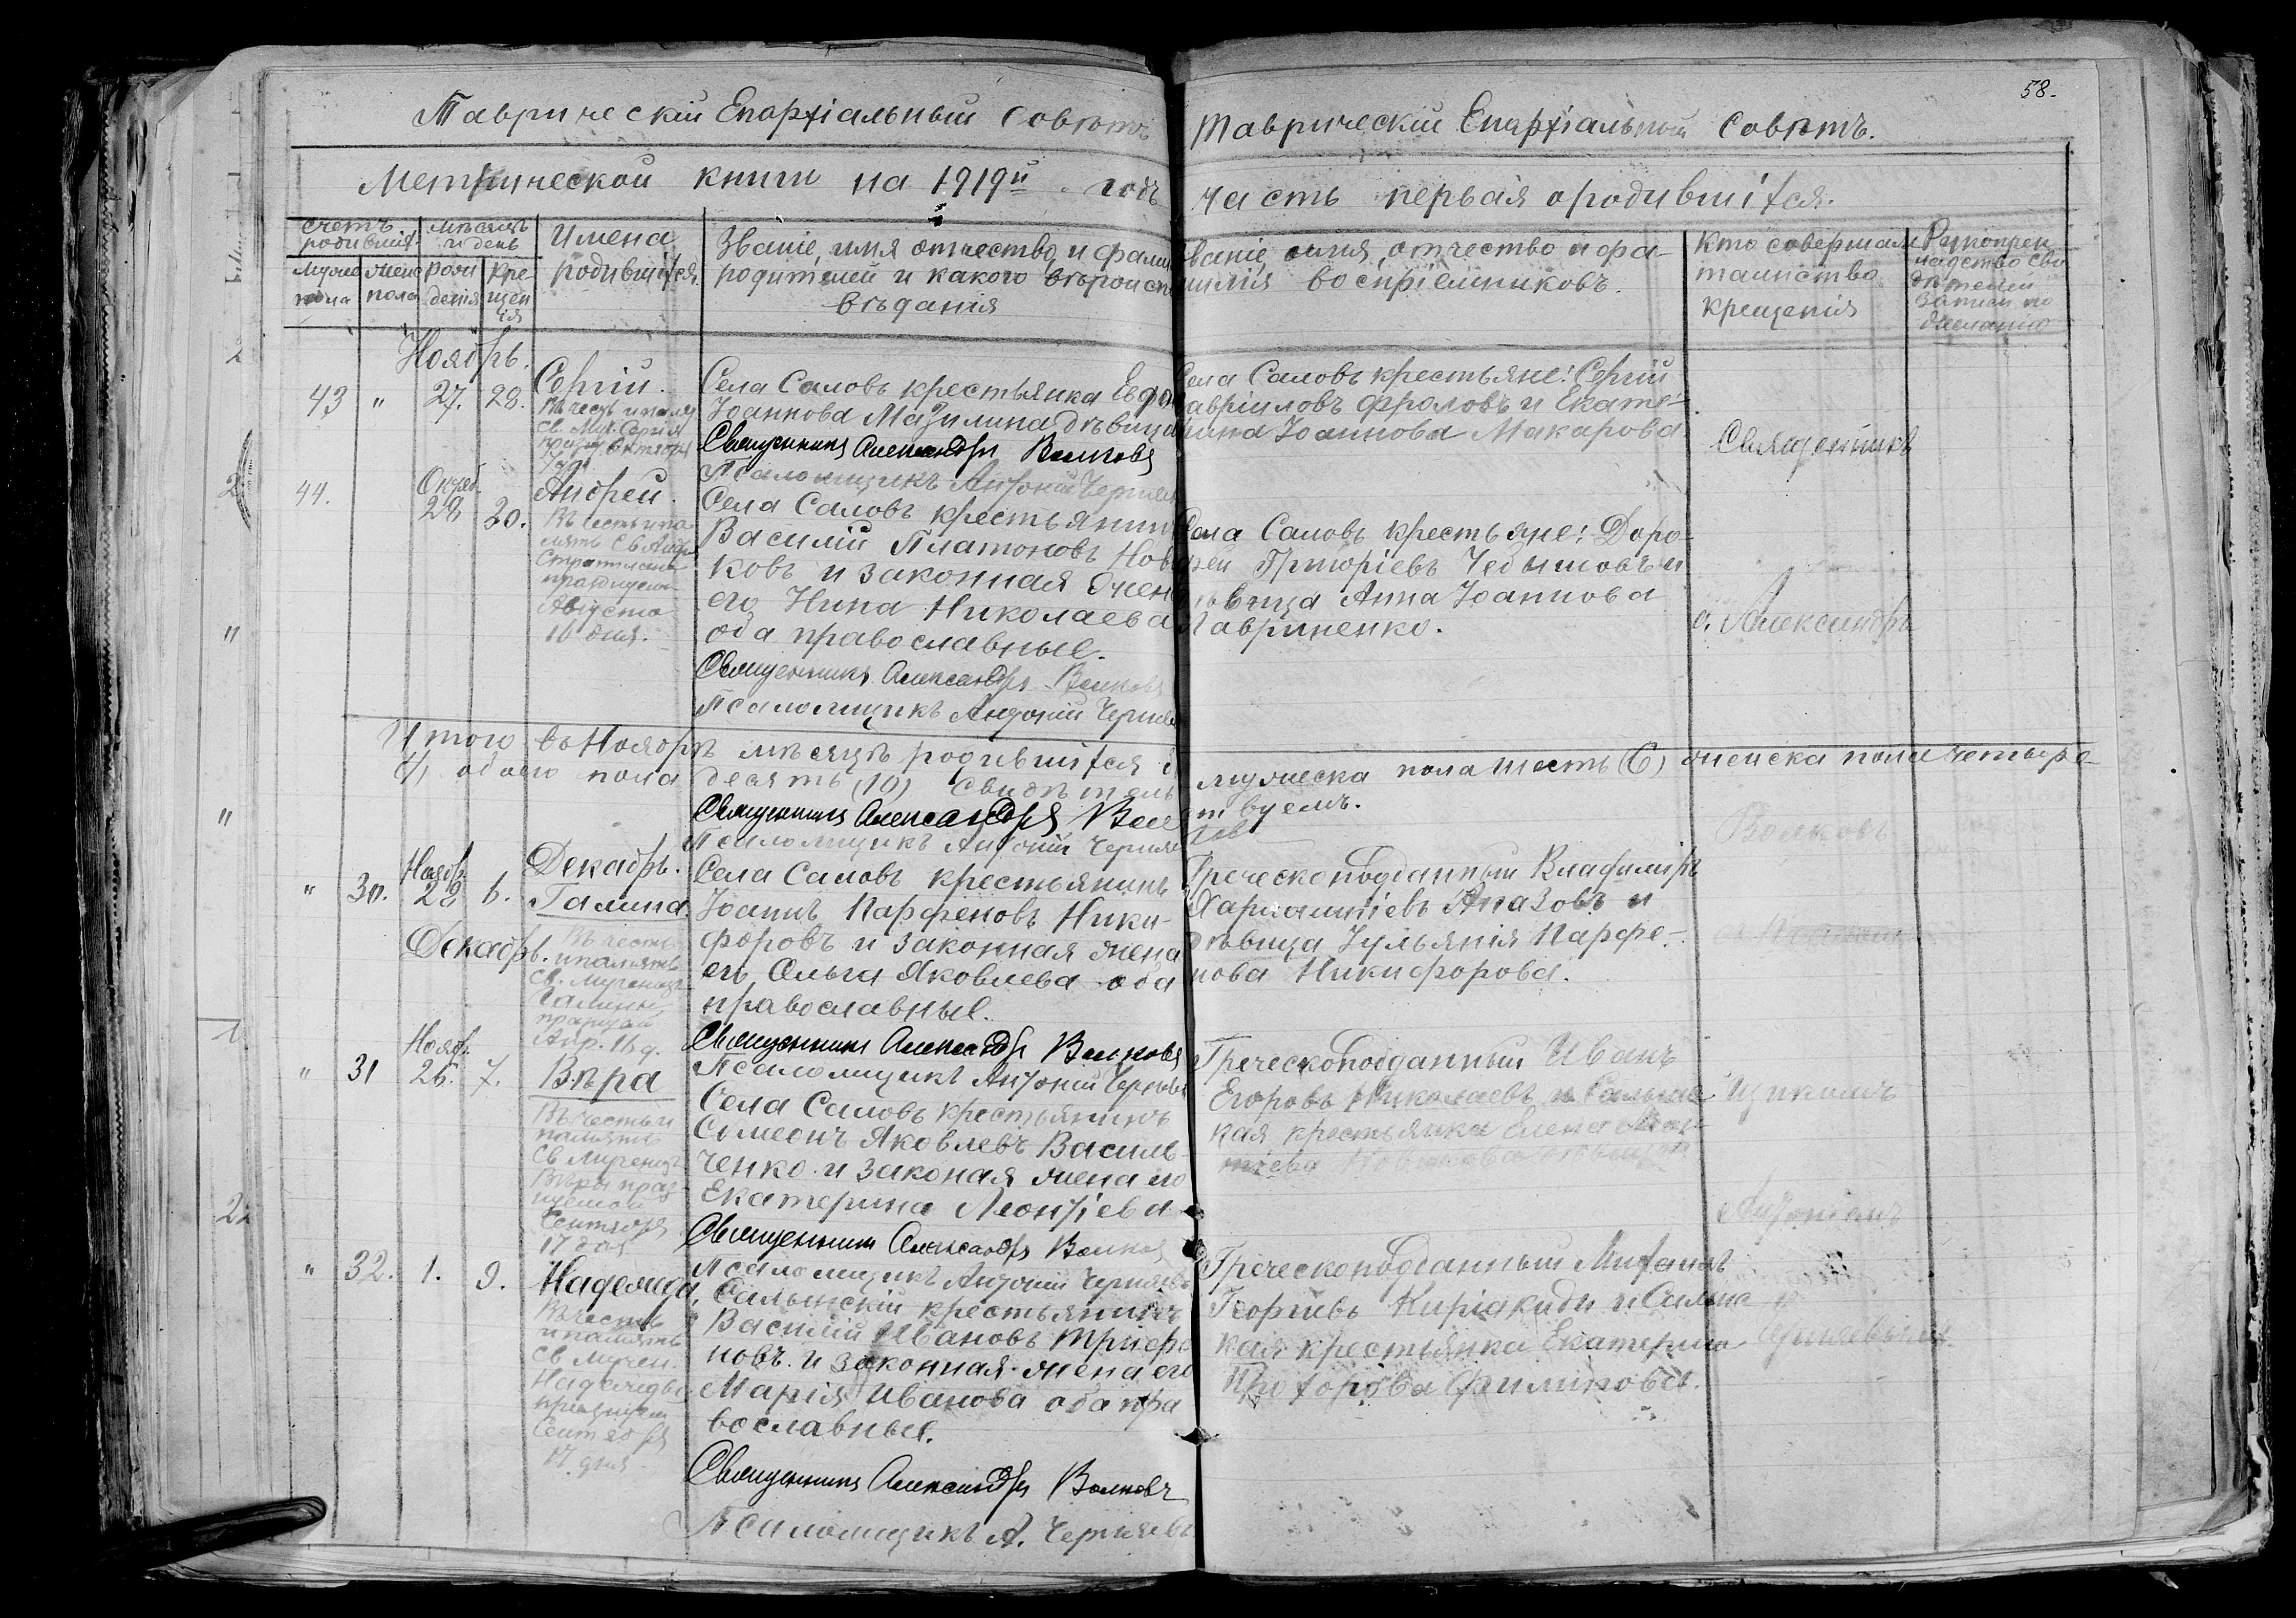 58.
Таврическій Епархіальный Совѣтъ
Таврическій Епархіальный Совѣтъ.
Метрической книги на 1919й годъ
часть первая о родившихся.
Счетъ родившихъ
Мѣсяцъ и день
Имена родившихся.
Званіе, имя отчество, и фамил
родителей и какого вѣроисп
вѣданія
мужес пола
женс пола
рожд денія
кре щен ія
Званіе имя, отчество и фа-
милія воспріемниковъ.
Кто совершалъ
таинство
крещенія
Рукоприк
ладство сви
дѣтелей
записи по
желанію
Ноябрь.
43 " 27. 28. Сергій.
Въ честь и память
Св. Муч. Сергія
празд. Октября
7 дня
Села Саловъ крестьянка Евдо
Іоаннова Мазилина дѣвица
Священникъ Александръ Волковъ
Псаломщикъ Антоній Черняев
Села Саловъ крестьяне: Сергій
Гавріиловъ Фроловъ и Екате-
рина Іоаннова Макарова
44. Октяб. 28 30. Андрей.
Въ честь и па
мять Св. Андр
Стратилата
празднуем
Августа
19 дня.
Села Саловъ крестьянин
Василій Платоновъ Нов
ковъ и законная жен
его Нина Николаева
оба православные.
Священникъ Александръ Волковъ
Псаломщикъ Антоній Черняев
Села Саловъ крестьяне: Доро-
фей Григоріевъ Чебышовъ и
дѣвица Анна Іоаннова
Гавриненко.
Священникъ
о. Александръ
Итого въ Ноябрѣ мѣсяцѣ родившихся
обоего пола десять (10) Свидѣтель
мужеска пола шесть (6) женска пола четыре
ствуемъ.
Священникъ Александръ Вол
ковъ
Псаломщикъ Антоній Черняев
Волковъ
Декабрь.
" 30. Ноябр. 28 6. Галина
Декабрь.
Въ честь
и память
Св. Мученицы
Галины
празднуем
Апр. 16 д.
Села Саловъ крестьянинъ
Іоаннъ Парфеновъ Ники-
форовъ и законная жена
его Ольга Яковлева оба
православные.
Священникъ Александръ Волковъ
Псаломщикъ Антоній Черняев
Греческоподданный Владиміръ
Харлампіевъ Апазовъ и
дѣвица Іульянія Парфе-
нова Никифорова.
" 31 Ноябр. 26. 7. Вѣра
Въ честь и
память
Св. Мученицы
Вѣры праз
нуемой
Сентября
17 дня
Села Саловъ крестьянинъ
Сѵмеонъ Яковлевъ Василь-
ченко и законая жена его
Екатерина Леонтіева
Священникъ Александръ Волковъ
Псаломщикъ Антоній Черняевъ
Греческоподданный Иванъ
Егоровъ Николаевъ и Салынс
кая крестьянка Елена
Новикова
Антоніемъ
" 32. 1. 9. Надежда
Въ честь
и память
Св. Мучен.
Надежды
празднуем
Сентября
17 дня
Салынскій крестьянинъ
Василій Ивановъ Трифо
новъ. и законная жена его
Марія Иванова оба пра
вославные.
Священникъ Александръ Волковъ
Псаломщикъ А. Черняевъ
Греческоподданный Михаилъ
Георгіевъ Киріакиди и Салынс
кая крестьянка Екатерина
Прохорова Филипова.
Черняевымъ